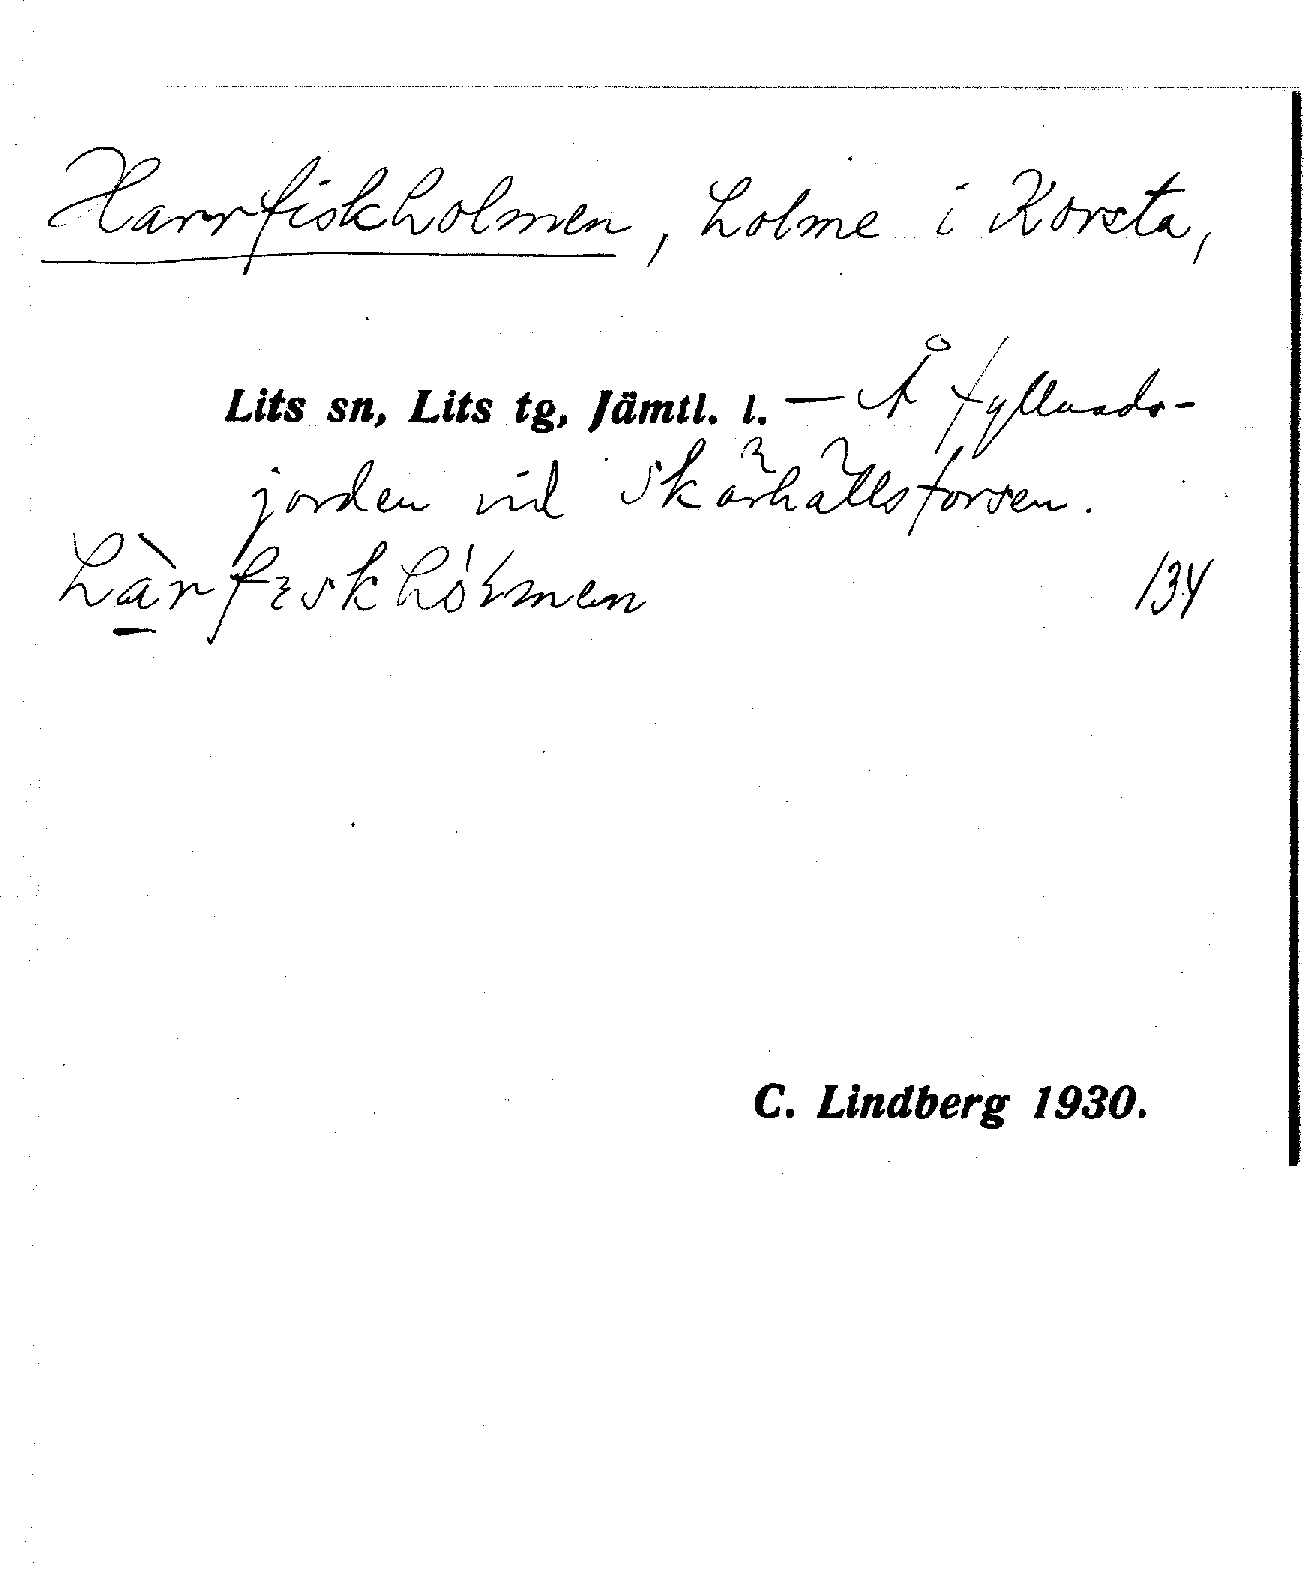 Harrfiskholmen, holme i Korsta,
Lits sn, Lits tg, Jämtl. l. — Å Gyllands-
jorden vid Skärhällsforsen.
hàrfıskhólmen 134
C. Lindberg 1930.